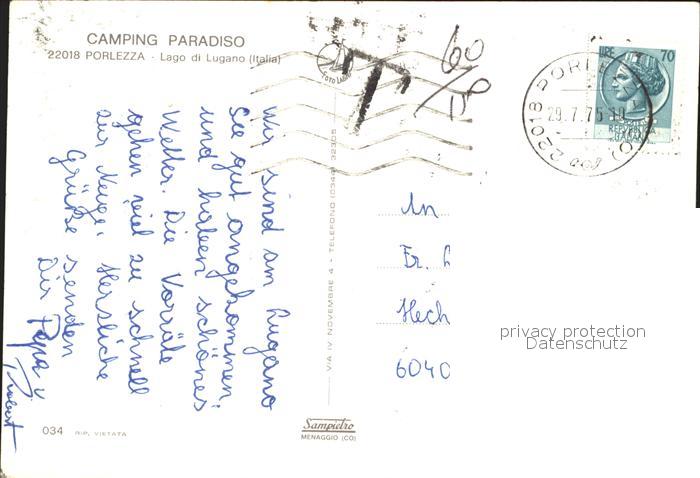 CAMPING PARADISO
22018 PORLEZZA - Lago di Lugano (Italia)
FOTO
T
60
70
LIRE 70
22018 PORLEZZA (CO)
29.7.75
Wir sind am Lugano
See gut angekommen
und haben schönes
Wetter. Die Vorräte
gehen viel zu schnell
zur Neige. Herzliche
Grüße senden
Dir Papa u
VIA IV NOVEMBRE 4 - TELEFONO (0344) 32305
An
Fr.
Hech
6040
privacy protection
Datenschutz
034 RIP. VIETATA
Sampietro
MENAGGIO (CO)